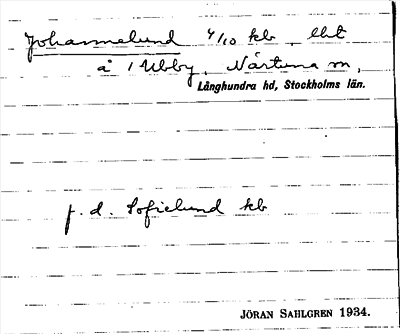 Johannelund 4/10 kb, lht
å 1 Ubby, Närtuna sn,
Långhundra hd, Stockholms län.
f. d. Sofielund kb
JÖRAN SAHLGREN 1934.